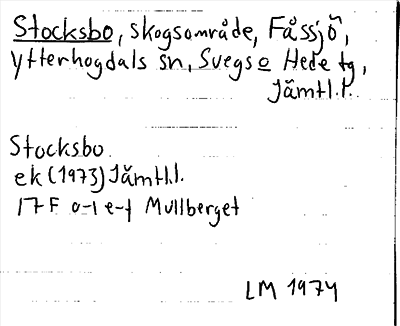 Stocksbo, skogsområde, Fåssjö,
Ytterhogdals sn, Svegs o Hede tg,
Jämtl.l.
Stocksbo
ek (1973) Jämtl.l.
17F a-i e-f Mullberget
LM 1974